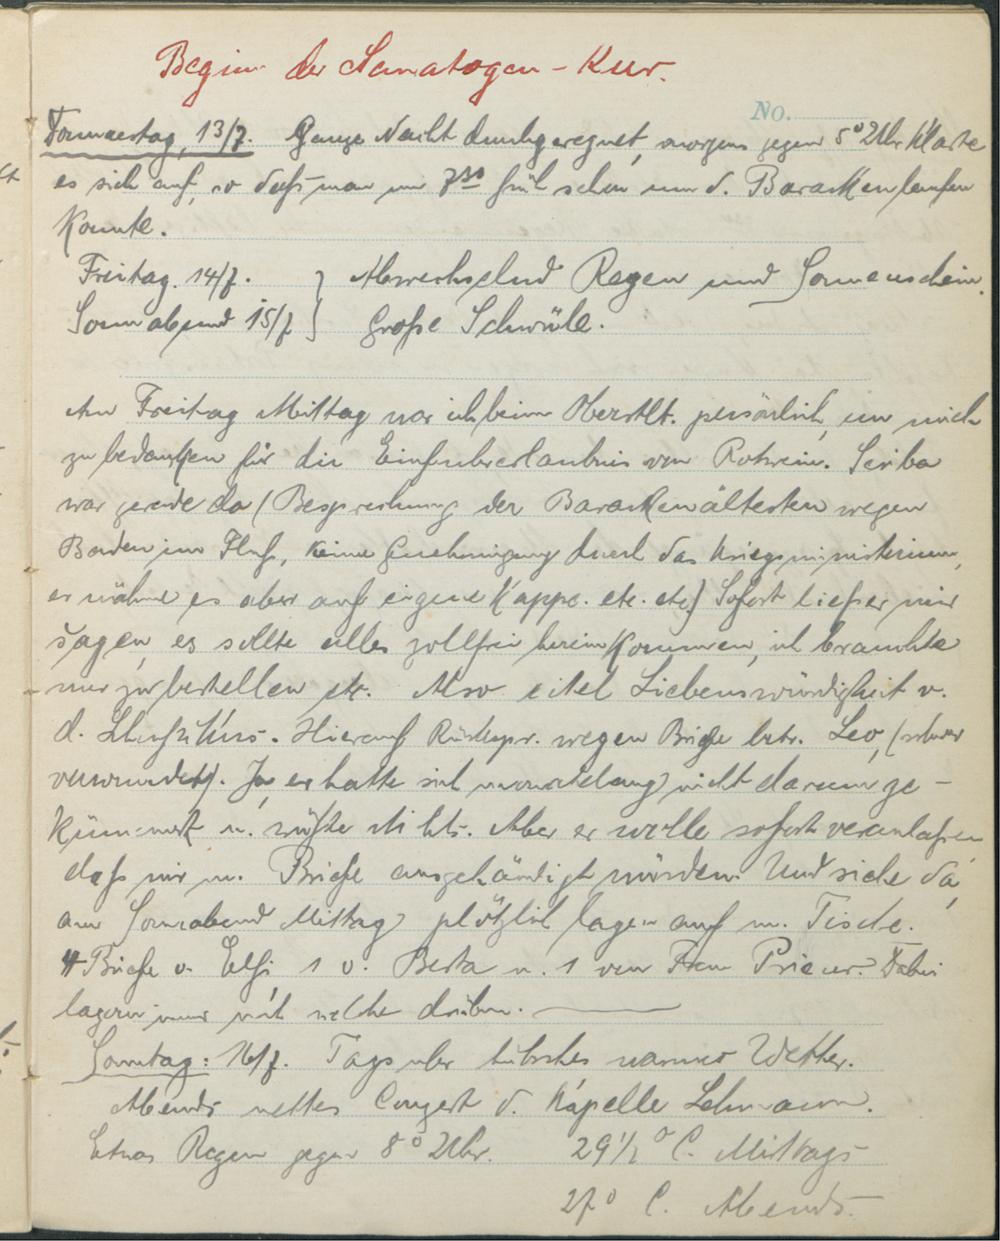 Beginn der Sanatogen-Kur.
No.
Donnerstag, 13/7. Ganze Nacht durchgeregnet, morgens gegen 5° Uhr klarte
es sich auf, so daß man um 7³⁰ früh schon um d. Baracken laufen
konnte.
Freitag. 14/7. } Abwechselnd Regen und Sonnenschein.
Sonnabend 15/7 } Große Schwüle.
Am Freitag Mittag war ich beim Oberstlt. persönlich, um mich
zu bedanken für die Einfuhrerlaubnis von Rotwein. Scriba
war gerade da (Besprechung der Barackenältesten wegen
Baden im Fluß, keine Genehmigung durch das Kriegsministerium,
er nähme es aber auf eigene Kappe. etc. etc) Sofort ließ er mir
sagen, es sollte alles zollfrei hereinkommen, ich brauchte
nur zu bestellen etc. Also eitel Liebenswürdigkeit v.
d. Hierauf Rückspr. wegen Briefe betr. Leo, (schwer
verwundet). Ja, er hatte sich monatelang nicht darum ge-
kümmert u. wüßte nichts. Aber er wolle sofort veranlaßen
daß mir m. Briefe ausgehändigt würden. Und siehe da,
am Sonnabend Mittag plötzlich lagen auf m. Tische.
4 Briefe v. Elsi, 1 v. Berta u. 1 von Frau Prieur. Dabei
lagern immer noch welche drüben.
Sonntag: 16/7. Tags über hübsches warmes Wetter.
Abends nettes Conzert d. Kapelle Lehmann.
Etwas Regen gegen 8° Uhr. 29 1/2° C. Mittags
27° C. Abends.